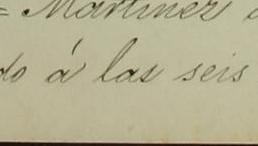 = Martinez
do á las seis